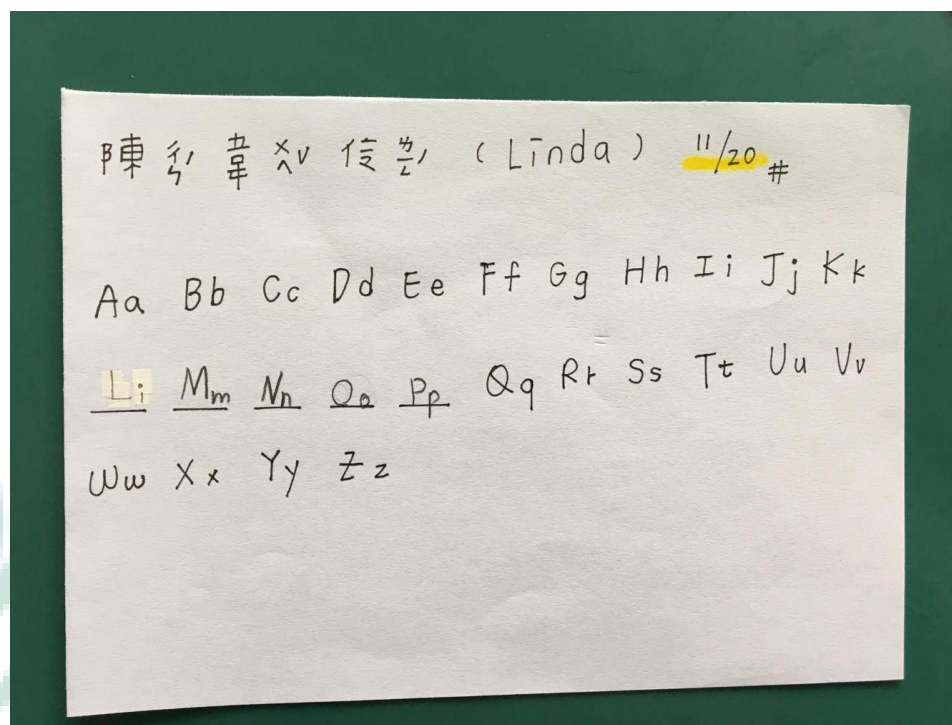 陳 ㄔㄣˊ ㄨㄟˇ (Linda) 11/20 #
Aa Bb Cc Dd Ee Ff Gg Hh Ii Jj Kk
Li Mm Nn Oo Pp Qq Rr Ss Tt Uu Vv
Ww Xx Yy Zz